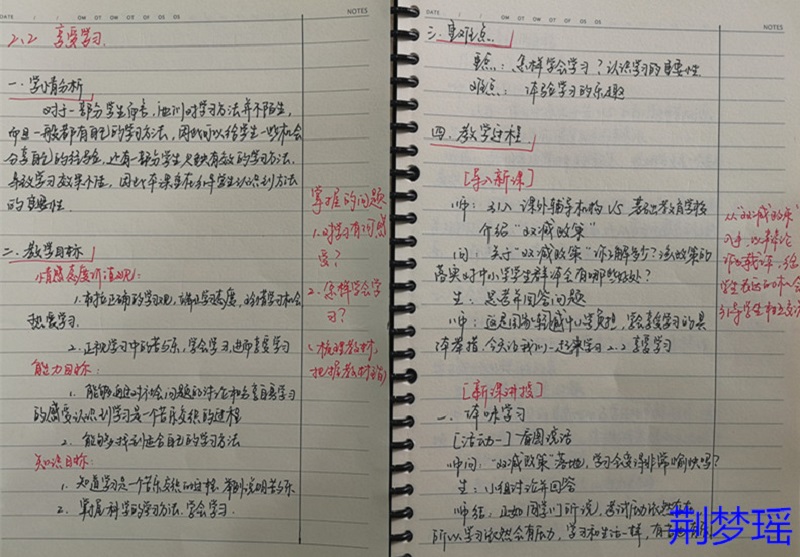 DATE / / ○M ○T ○W ○T ○F ○S ○S NOTES
2.2 享受学习
一.学情分析
对于一部分学生而言,他们对学习方法并不陌生,
而且一般都有自己的学习方法,因此可以给学生一些机会
分享自己的经验,还有一部分学生欠缺有效的学习方法,
导致学习效果不佳,因此本课旨在引导学生认识到方法
的重要性.
二.教学目标
情感态度价值观:
1.树立正确的学习观,端正学习态度,珍惜学习机会
热爱学习.
2.正视学习中的苦与乐,学会学习,进而享受学习
能力目标:
1.能够通过对 问题的讨论和 自身学习
的感受认识到学习是一个苦乐交织的过程
2.能够找到适合自己的学习方法
知识目标:
1.知道学习是一个苦乐交织的过程.举例说明苦与乐
2.掌握科学的学习方法,学会学习.
掌握的问题
1.对学习有何感
受?
2.怎样学会学
习?
(梳理教材,
把握教材)
DATE / / ○M ○T ○W ○T ○F ○S ○S NOTES
三.重难点.
重点:怎样学会学习?认识学习的重要性.
难点:体验学习的乐趣
四.教学过程.
[导入新课]
师:引入 课外辅导机构 VS 基础教育学校
介绍“双减政策”
问:关于“双减政策”你了解多少?该政策的
落实对中小学生群体会有哪些好处?
生:思考并回答问题
师:这是国家轻减中小学负担,享受学习的具
体举措.今天让我们一起来学习2.2享受学习
[新课讲授]
一.体味学习
[活动一]看图说话
师问:“双减政策”落地,学习会变得非常愉快吗?
生:小组讨论并回答
师结:正如同学们所说,考试
所以学习依然会有压力,学习和生活一样,有
从“双减政策”
入手,
引导学生
荆梦瑶